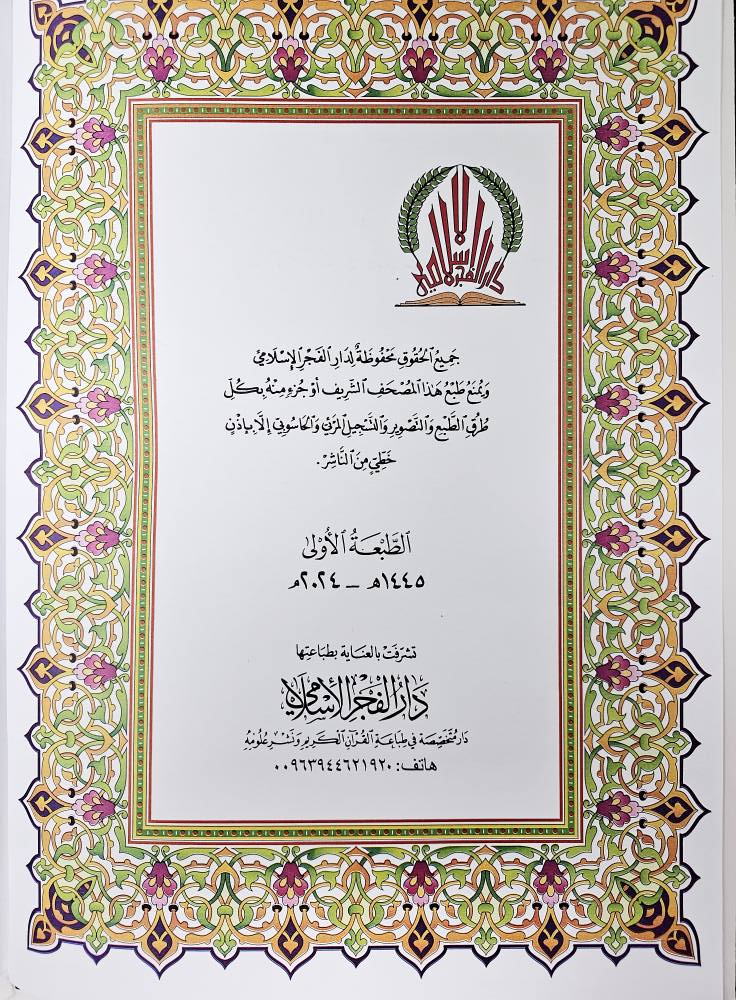 دار الفجر الإسلامي
جَمِيعُ ٱلْحُقُوقِ مَحْفُوظَةٌ لِدَارِ ٱلْفَجْرِ ٱلْإِسْلَامِيِّ
وَيُمْنَعُ طَبْعُ هٰذَا ٱلْمُصْحَفِ ٱلشَّرِيفِ أَوْ جُزْءٍ مِنْهُ بِكُلِّ
طُرُقِ ٱلطَّبْعِ وَٱلتَّصْوِيرِ وَٱلتَّسْجِيلِ ٱلْمَرْئِيِّ وَٱلْحَاسُوبِيِّ إِلَّا بِإِذْنٍ
خَطِّيٍّ مِنَ ٱلنَّاشِرِ.
ٱلطَّبْعَةُ ٱلْأُوْلَى
١٤٤٥هـ – ٢٠٢٤م
تشرّفَتْ بالعنَاية بطبَاعتِها
دَارُ الفَجْرِ الإِسْلَامِيِّ
دَار مُتَخَصِّصَة فِي طِبَاعَةِ ٱلْقُرْآنِ ٱلْكَرِيمِ وَنَشْرِ عُلُومِهِ
هَاتف: ٠٠٩٦٣٩٤٤٦٢١٩٢٠